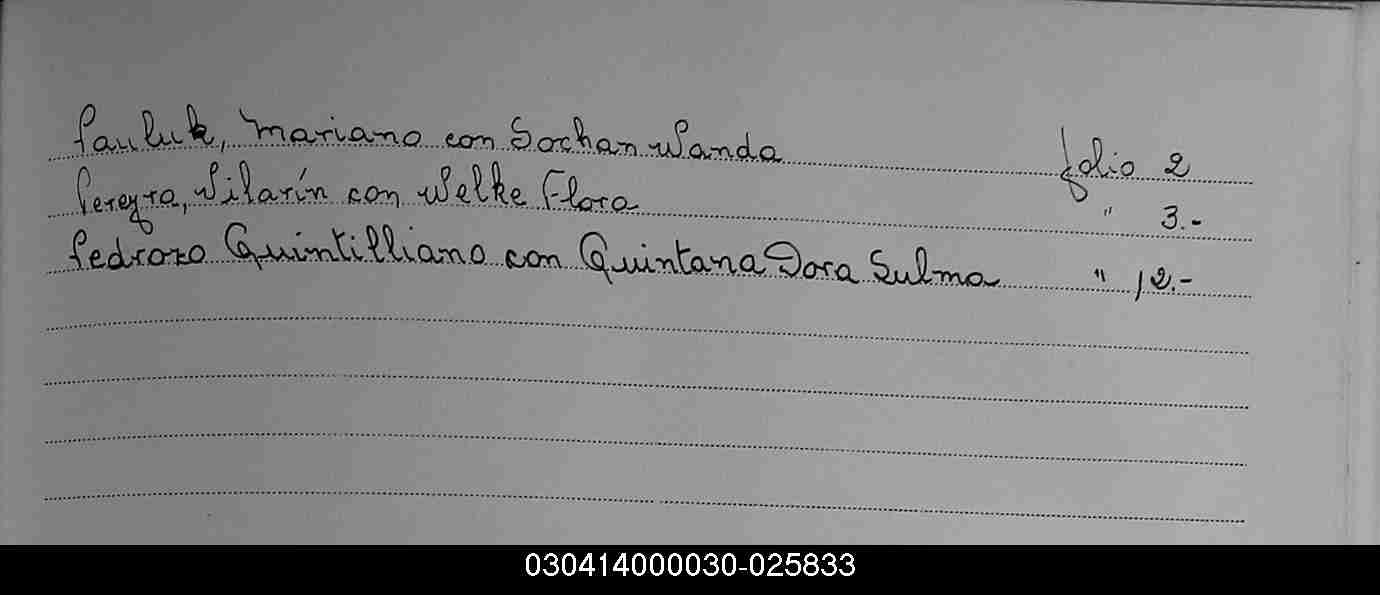 Pauluk, Mariano con Sochan Wanda folio 2
Pereyra, Vilarín con Welke Flora " 3.-
Pedrozo Quintilliano con Quintana Dora Sulma " 12.-
030414000030-025833